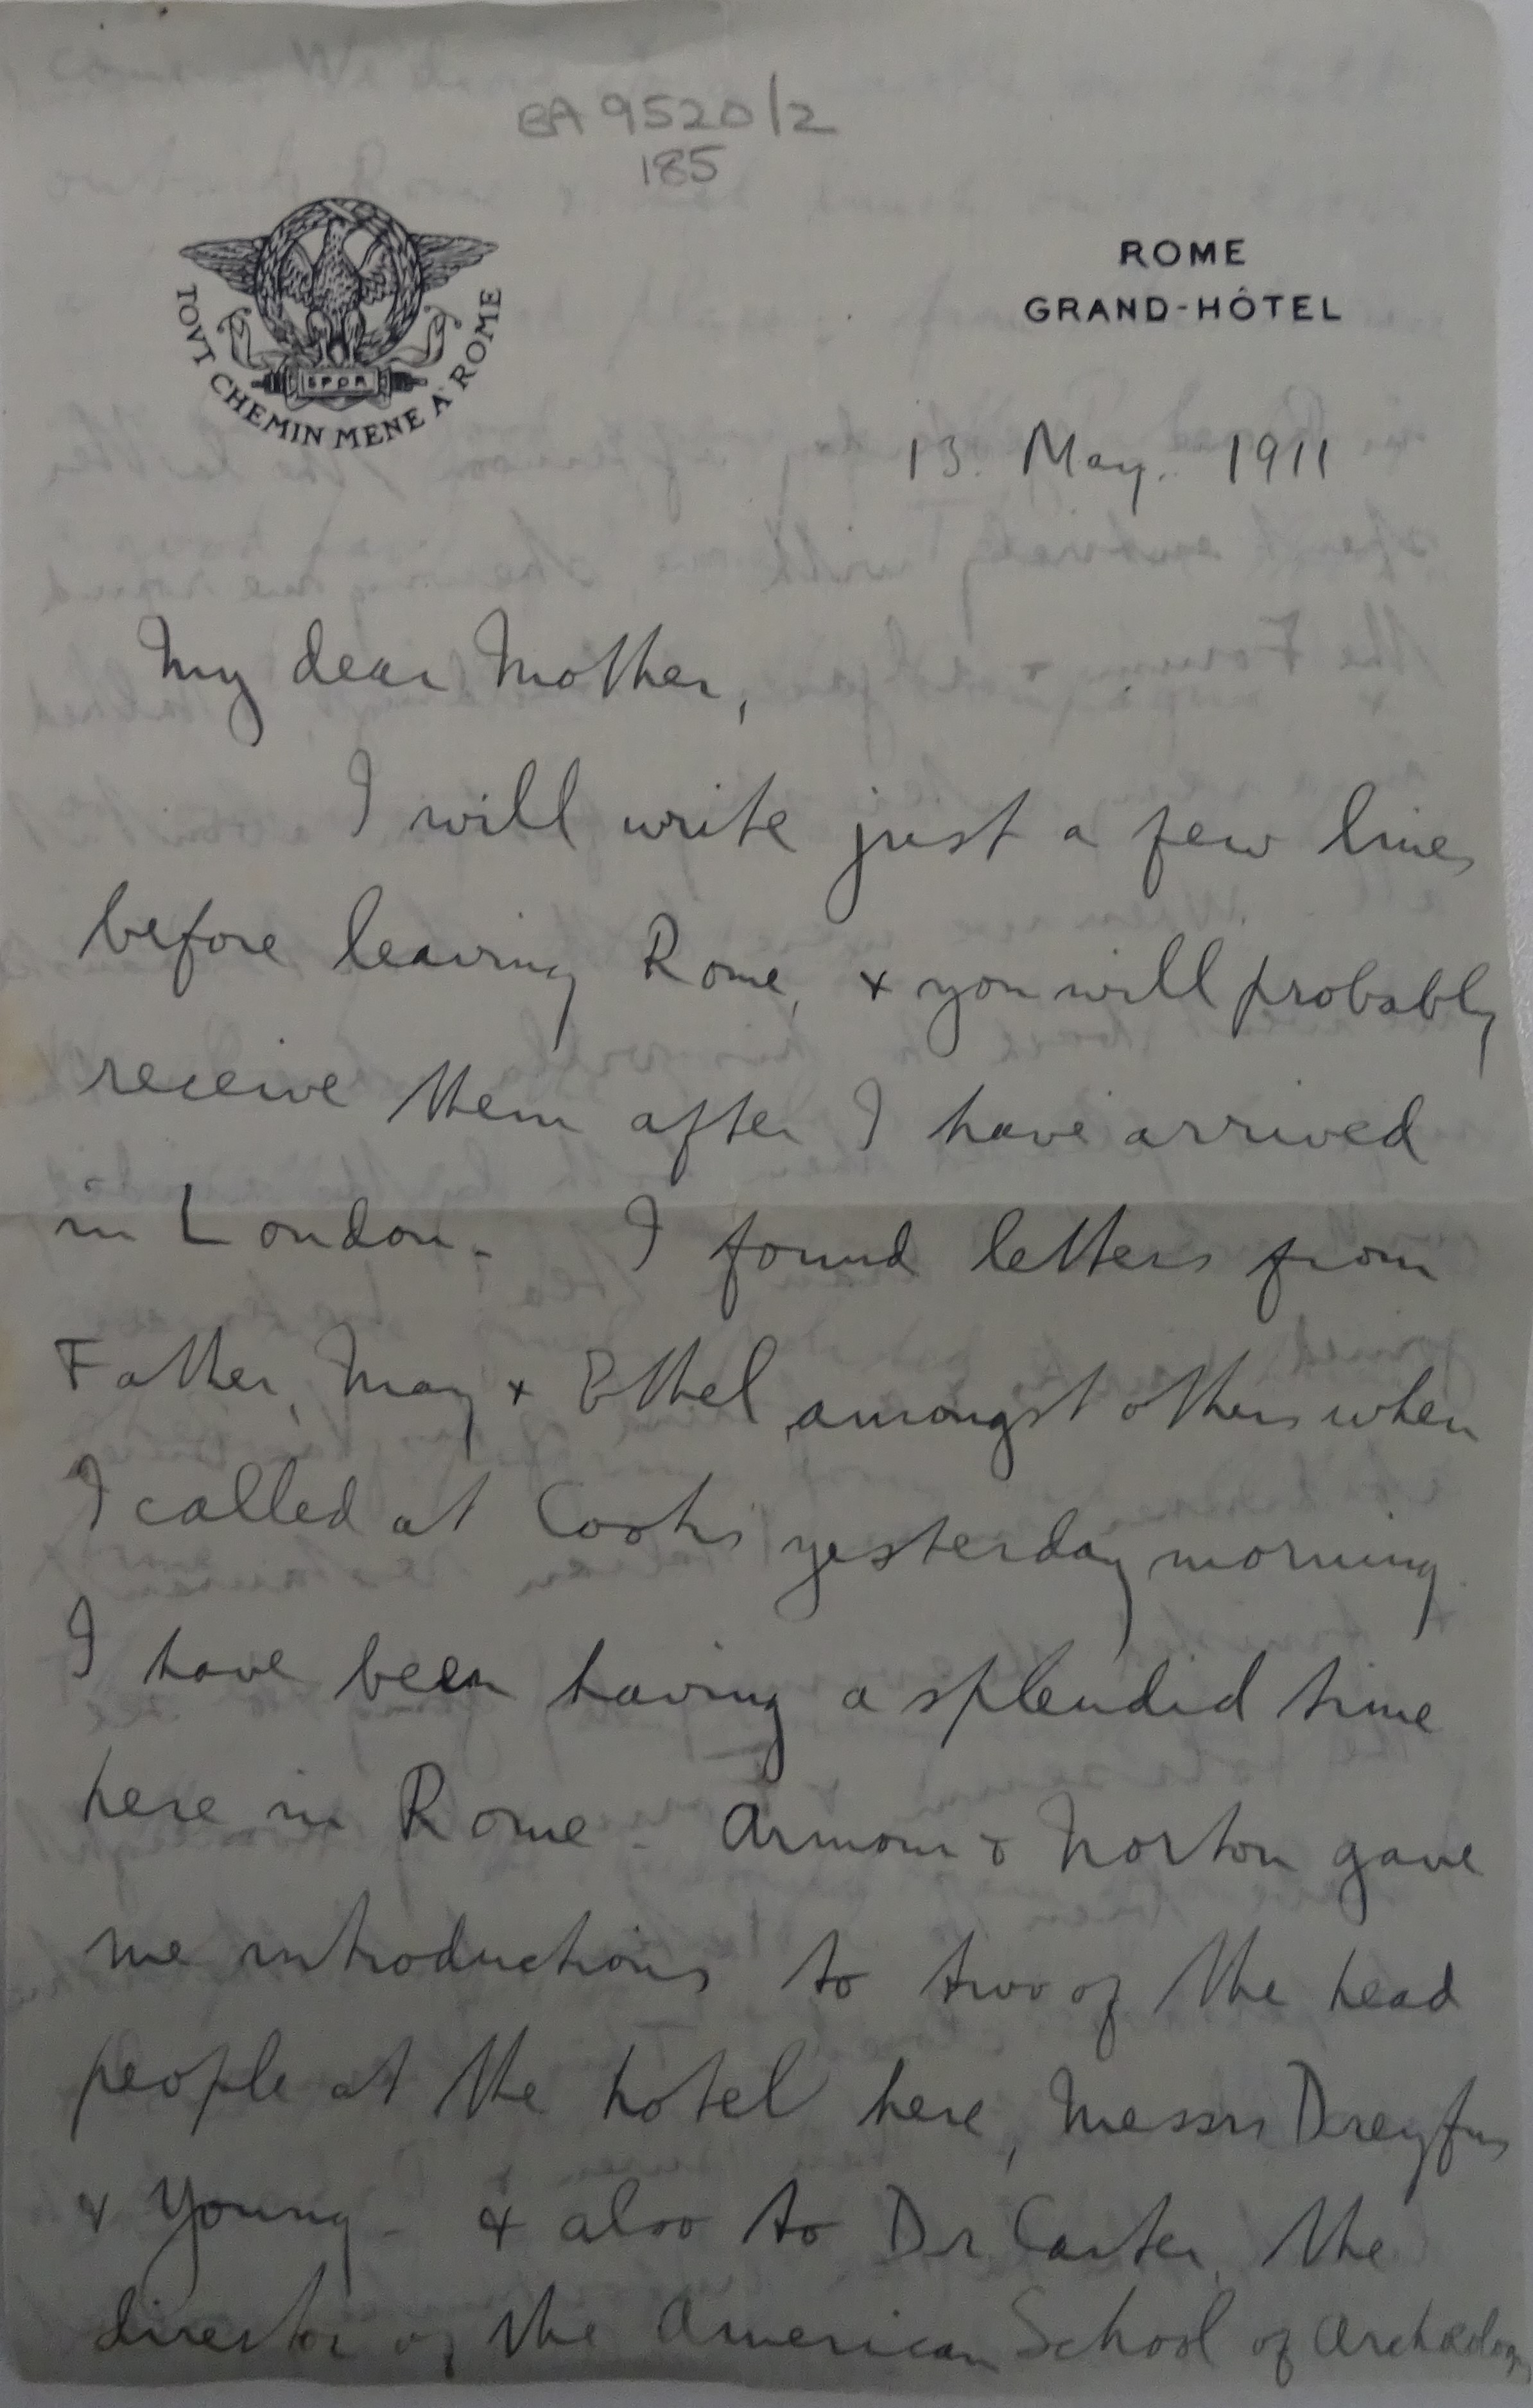 BA 9520/2
185
TOVT CHEMIN MENE A ROME
SPQR
ROME
GRAND-HÔTEL
13. May. 1911
My dear Mother,
I will write just a few lines
before leaving Rome, & you will probably
receive them after I have arrived
in London. I found letters from
Father, May & Ethel amongst others when
I called at Cooks yesterday morning.
I have been having a splendid time
here in Rome. Armour & Norton gave
me introductions to two of the head
people at the hotel here, Messrs Dreyfus
& Young - & also to Dr Carter, the
director of the American School of Archæology